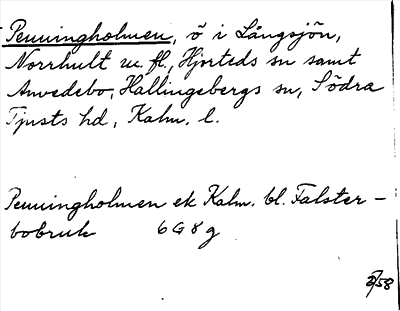 Penningholmen, ö i Långsjön,
Norrhult m. fl., Hjorteds sn samt
Anvedebo, Hallingebergs sn, Södra
Tjusts hd, Kalm. l.
Penningholmen ek Kalm. bl. Falster-
bobruk 6G8g
58